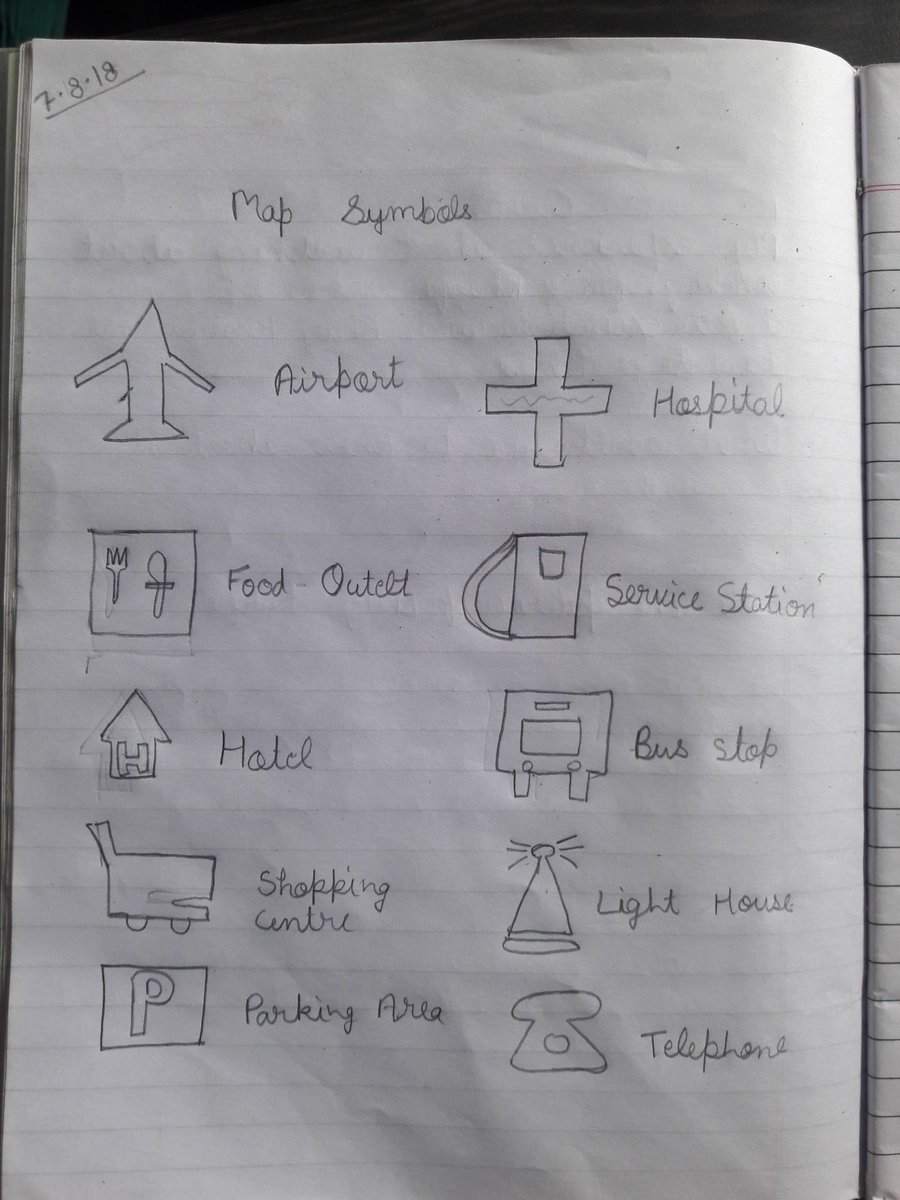 7.8.18
Map Symbols
Airport
Hospital
Food - Outelt
Service Station
H
Hotel
Bus stop
Shopping
centre
Light House
P
Parking Area
Telephone